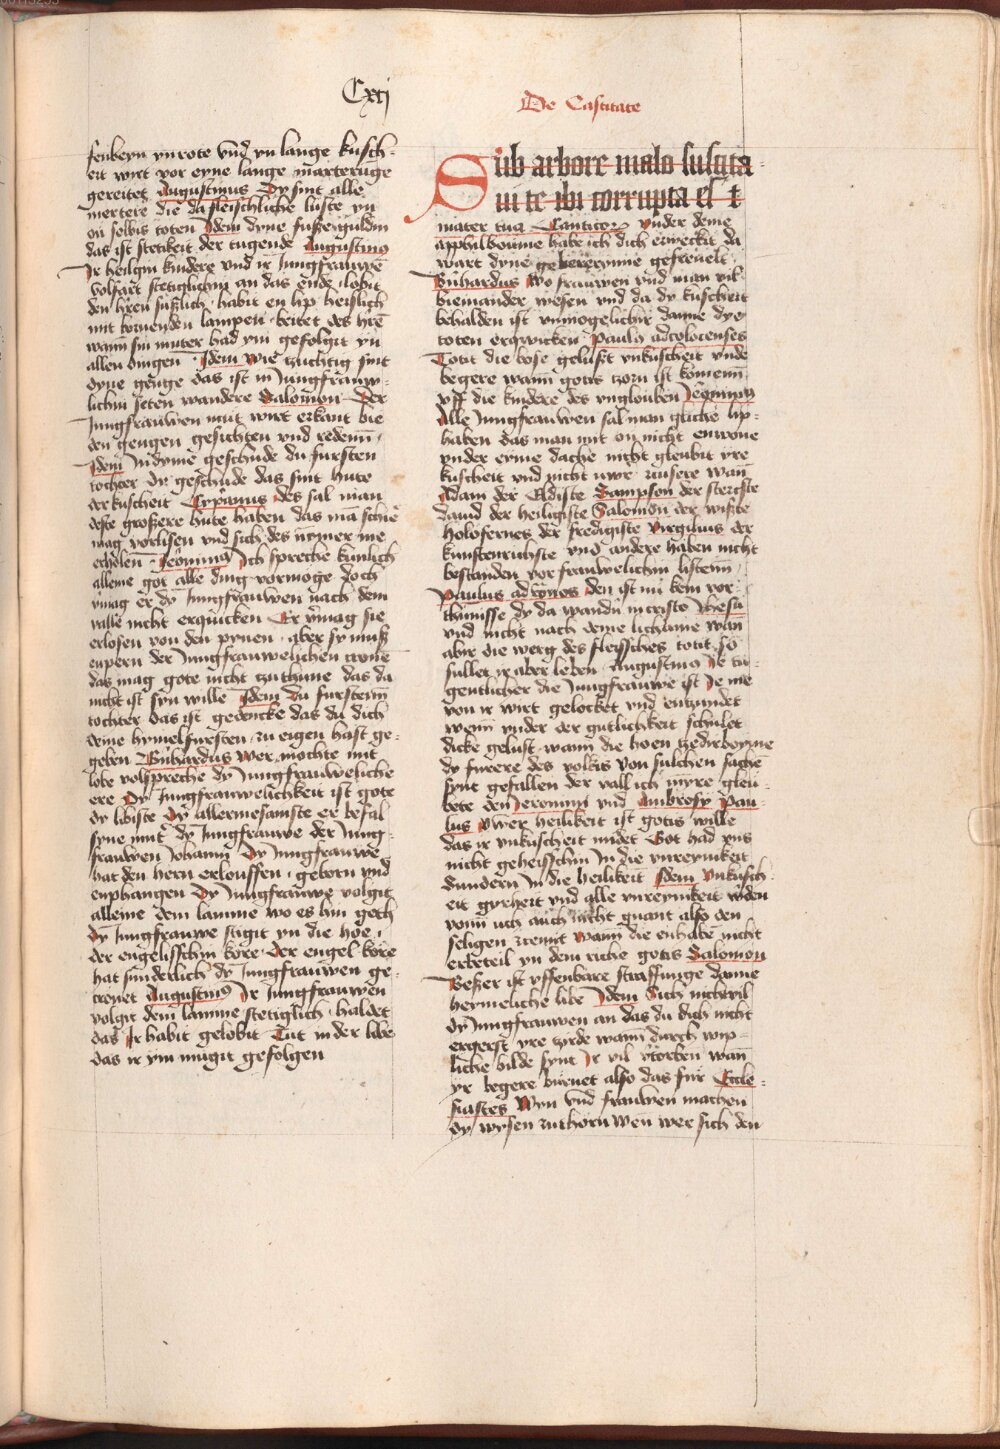 Cxcj
senbeyn yn rote vnd yn lange kusch-
eit wirt vor eyne lange marterunge
gereitet Augustinus Dy sint alle
mertere die da fleischliche luste yn
on selbis toten Idem dyne fuße guldin
das ist stetikeit der tugende Augustinus
Ir heilgin kindere vnd ir Jungfrauwen
volfart stetiglichin an das ende lobit
den hern sußlich habit en lip heislich
mit bornenden lampen beitet des hern
wann sin muter had ym gefolgit yn
allen dingen Idem wie zuchtig sint
dyne genge das ist in Jungfrauw-
lichin seten wandere Salomon Der
Jungfrauwen mut wirt erkant bie
den gengen gesichten vnd redenn
Idem In dyme geschude du fursten
tochter Dy geschude das sint hute
der kuscheit Cyprianus des sal man
deste großere hute haben das man schire
mag vorlisen vnd sich des nymer me
erholen Jeronimus Ich spreche kunlich
alleine got alle ding vormoge doch
vermag er dy Jungfrauwen nach dem
valle nicht erquicken Er vermag sie
erlosen von den pynen aber sy muß
enpern der Jungfrauwelichen crone
das mag gote nicht zuthune das da
nicht ist syn wille Idem Du furstenn
tochter das ist gedencke das du dich
deme hymelfursten zu eigen hast ge-
geben Bernhardus Wer mochte mit
lobe volspreche dy Jungfrauweliche
ere Dy Jungfrauwelichkeit ist gote
dy libiste Dy allermesamste er befal
syne mutter dy Jungfrauwe der Jung-
frauwen Johanni Dy Jungfrauwe
hat den hern erlouffen geborn vnd
enphangen Dy Jungfrauwe volgit
alleine dem lamme wo es hin geth
Dy Jungfrauwe stigit yn die hoe
der engelisschin kore Der engel kore
hat sunderlich dy Jungfrauwen ge-
cronet Augustinus Ir Jungfrauwen
volgit dem lamme stetiglich haldet
das Ir habit gelobit Tut in der libe
das ir ym mugit gefolgen
De Castitate
Sub arbore malo suscita
ui te ibi corrupta est
mater tua Canticorum Vnder deme
apphilboume habe ich dich erweckit da
wart dyne gebererynne gefreuelt
Bernhardus Wo frauwen vnd man vil
bieinander wesen vnd da dy kuscheit
behalden ist vnmogelichir danne dye
toten erquicken Paulus ad colocenses
Totit die bose gelust vnkuscheit vnde
begere wann gotis zorn ist komenn
vff die kindere des vnglouben Jeronimus
Alle Jungfrauwen sal man gliche lip-
haben das man mit on nicht enwone
vnder eyme dache nicht gleubit yre
kuscheit vnd nicht uwer vnsere wan
Adam der Eldiste Sampson der sterckste
dauid der heiligiste Salomon der wiste
Holofernes der fredigiste Virgilius der
kunstenrichste vnd andere haben nicht
bestanden vor frauwelichin listenn
Paulus ad romanos den ist nu kein vor-
thumnisse dy da wandern in cristo Jhesu
vnd nicht nach deme lichame wan
abir die werg des fleysches totit so
sullet ir aber leben Augustinus Je tu-
gentlicher die Jungfrauwe ist Je me
von ir wirt gelocket vnd entzundet
wenn vnder der gutlichkeit schulet
dicke gelust wann die hoen zedirboyme
dy furere des volkis von sulchen sache
synt gefallen der vall ich myre gleu-
bete den Jeronimi vnd Ambrosy Pau-
lus Uwer heilikeit ist gotis wille
das ir vnkuscheit midet Got had vns
nicht geheisschin In die vnreynikeit
Sundern In die heilikeit Idem Vnkusch-
eit gyrheit vnd alle vnreynikeit werden
vonn uch auch nicht gnant also den
seligen zcemit Wann die enhabe nicht
erbeteil yn dem riche gotis Salomon
Beßer ist vffenbare straffunge danne
heymeliche libe Idem Sich nicht vil
dy Jungfrauwen an das du dich nicht
ergerst yre zirde wann durch wip-
liche bilde synt Ir vil vertorben wan
yr begere burnet also das fur Eccle-
siastes Wyn vnd frauwen machen
dy wysen zu thorn Wen wer sich den